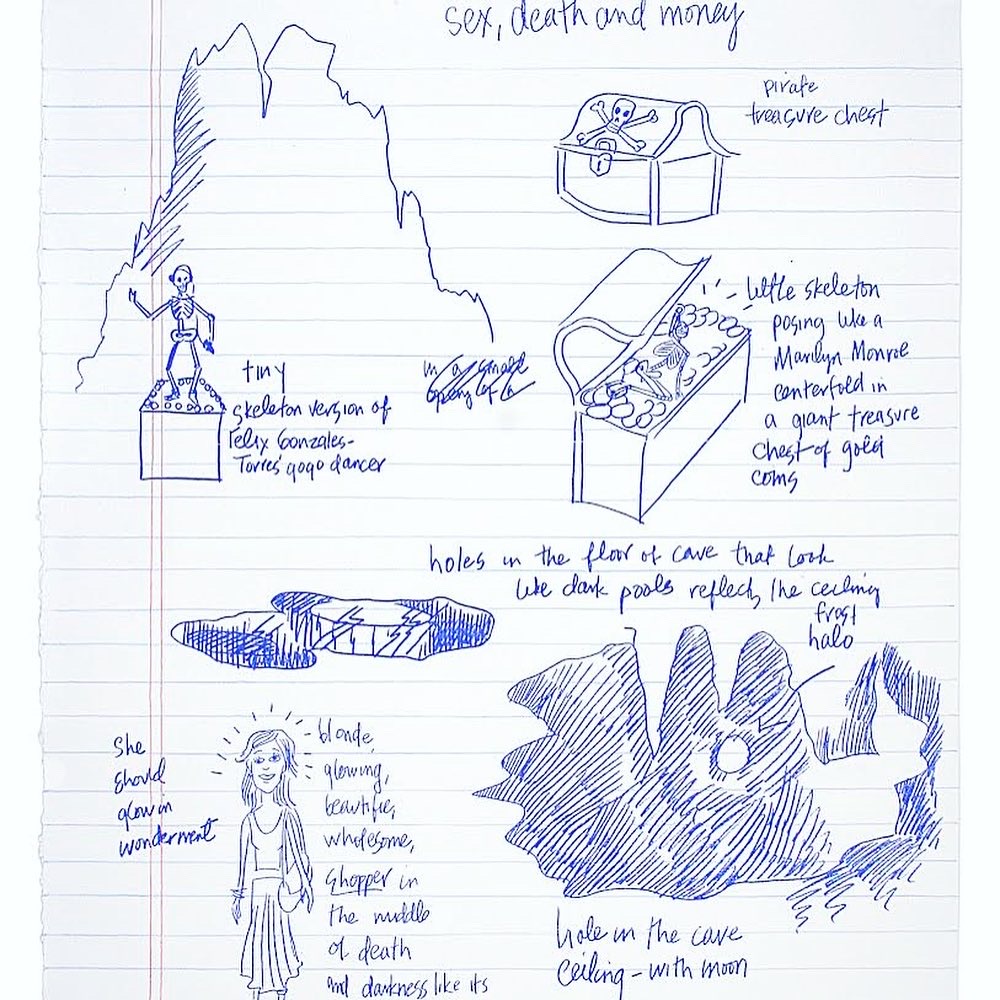 sex, death and money
pirate
treasure chest
little skeleton
posing like a
Marilyn Monroe
centerfold in
a giant treasure
chest of gold
coins
tiny
skeleton version of
Felix Gonzales-
Torres' gogo dancer
in a small
holes in the floor of cave that look
like dark pools reflectg the ceiling
frost
halo
She
should
glow in
wonderment
blonde,
glowing,
beautiful,
wholesome,
shopper in
the middle
of death
and darkness like its
hole in the cave
ceiling - with moon